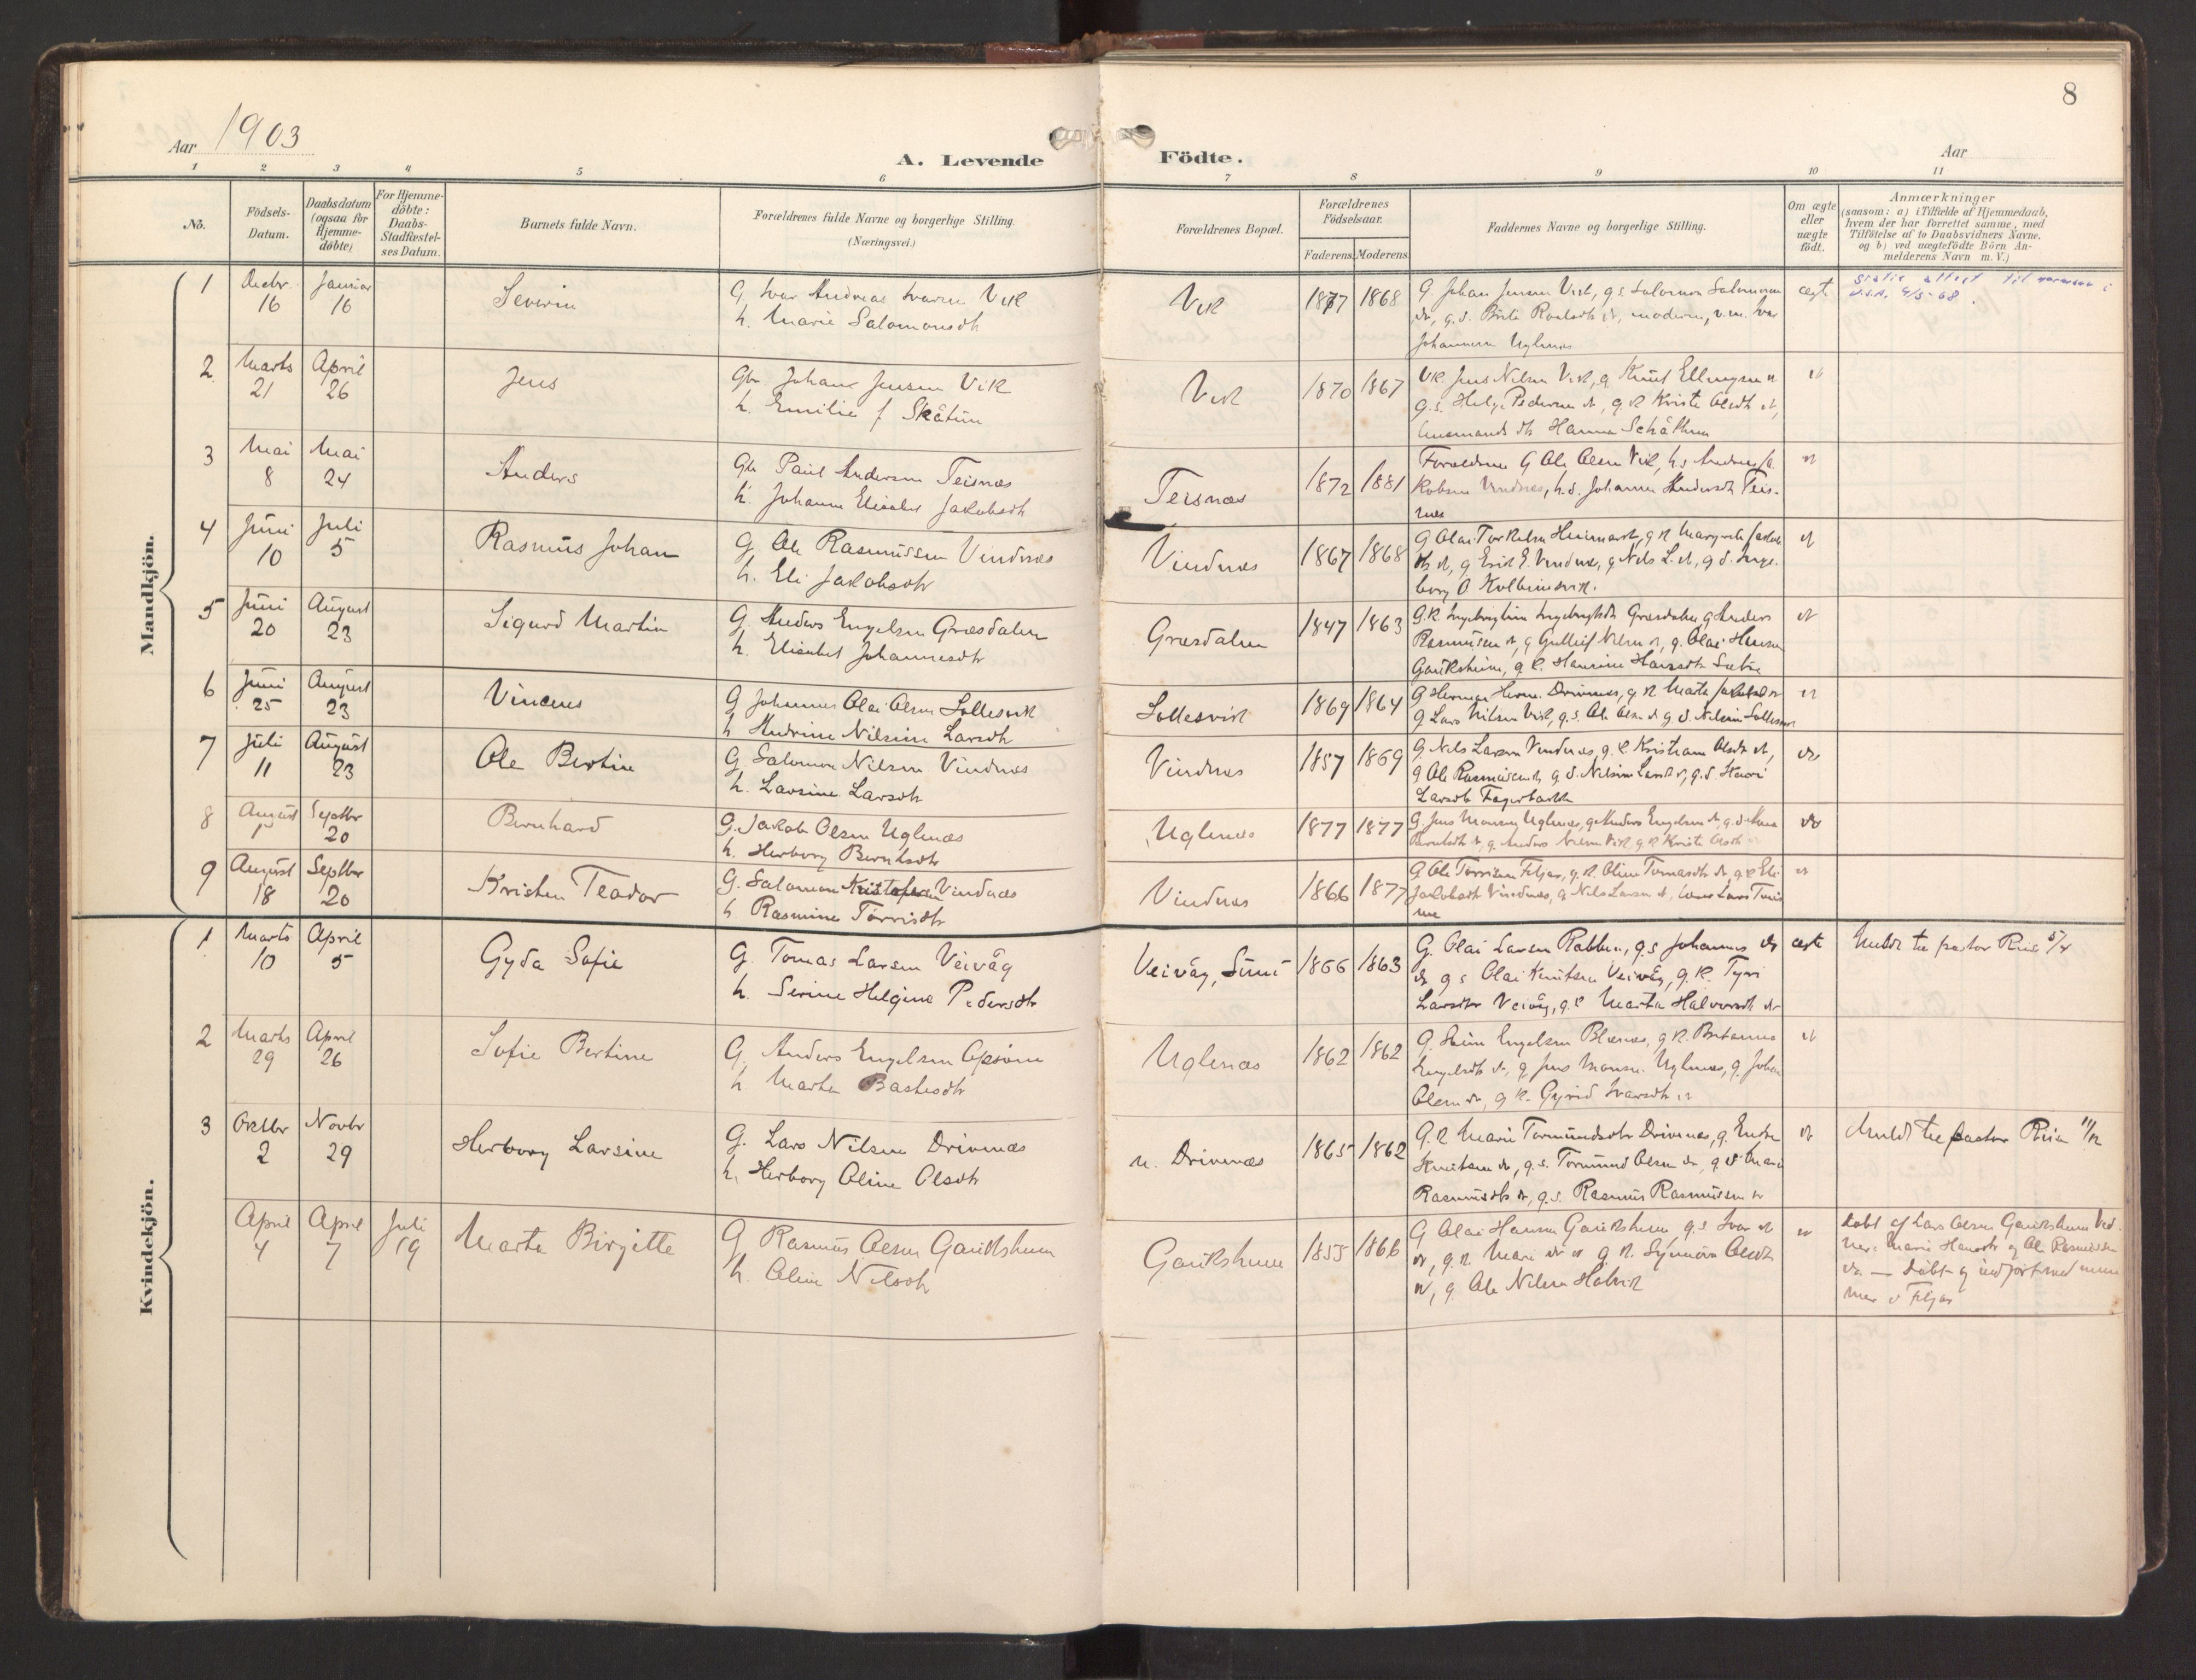 8
Aar 1903
A. Levende Födte.
Aar
1 2 3 4 5 6 7 8 9 10 11
No.
Födsels-Datum.
Daabsdatum (ogsaa for Hjemme-döbte)
For Hjemme-döbte: Daabs-Stadfæstel-ses Datum.
Barnets fulde Navn.
Forældrenes fulde Navne og borgerlige Stilling.
(Næringsvei.)
Forældrenes Bopæl.
Forældrenes Födselsaar.
Faderens. Moderens.
Faddernes Navne og borgerlige Stilling.
Om ægte eller uægte födt.
Anmærkninger
(saasom: a) i Tilfælde af Hjemmedaab,
hvem der har forrettet samme, med
Tilföielse af to Daabsvidners Navne,
og b) ved uægtefödte Börn An-
melderens Navn m. V.)
Mandkjön.
1 Decbr. 16 Januar 16 Severin
G. Ivar Andreas Ivarsen Vik
h. Marie Salomonsdtr
Vik 1877 1868
G Johan Jensen Vik, g.s. Salomon Salomonsen
do, g.d. Brita Roaldsdtr do, moderen, u.m. Ivar
Johannesen Uglenæs
ægte
2 Marts 21 April 26 Jens
Gbr Johan Jensen Vik
h. Emilie f Skåtun
Vik 1870 1867
Jens Nilsen Vik, g. Knut Ellingsen do
g.s. Helge Pedersen do, g.k Kristi Olsdtr do,
Hanna Schåthun
3 Mai 8 Mai 24 Anders
Gbr Paul Andersen Teisnæs
h. Johanne Elisabet Jakobsdtr
Teisnæs 1872 1881
Forældrene G Ole Olsen Vik, h.s Andreas Ja
kobsen Vindnes, h.d. Johanne Andersdtr Teis-
næs
4 Juni 10 Juli 5 Rasmus Johan
G. Ole Rasmussen Vindnæs
h. Eli Jakobsdtr
Vindnæs 1867 1868
G Olai Torkelsen g k Margrete Jakobs
dtr do, g Erik E. Vindnæs, g Nils L. do, g.d. Inge-
borg O Kolbeinsvik.
5 Juni 20 August 23 Sigurd Martin
G. Anders Engelsen Græsdalen
h. Elisabet Johannesdtr
Græsdalen 1847 1863
G.K. Ingebrigtsdtr Græsdalen, g Anders
Rasmussen do, g Gulleif Nilsen do, g. Olai Hansen
Gauksheim, g k. Hansine Hansdtr Sæbø
6 Juni 25 August 23 Vincens
G Johannes Olai Olsen Sollesvik
h Andrine Nilsine Larsdtr
Sollesvik 1869 1864
G Herman Herm. Drivenes, g k Marta Jakobsd do
g Lars Nilsen Vik, g.s. Ole Olsen do g.d. Nilsine Sollesvik
7 Juli 11 August 23 Ole Bertin
G. Salomon Nilsen Vindnæs
h. Larsine Larsdtr
Vindnæs 1857 1869
G. Nils Larsen Vindnæs, g.k. Kristiane Olsdtr do,
g Ole Rasmussen do, g d. Nilsine Larsd do, g.d.
Larsdtr Fagerbakke
do
8 August 1 Septbr 20 Bernhard
G. Jakob Olsen Uglenæs
h. Herborg Berntsdtr
Uglenæs 1877 1877
G. Jens Monsen Uglenæs, g Anders Engelsen do, g.d. Anna
Berntsdtr do, g. Anders Nilsen Vik g k Kristi Olsdtr
do
9 August 18 Septbr 20 Kristen Teodor
G. Salomon Kristofersen Vindnæs
h Rasmine Torrisdtr
Vindnæs 1866 1877
G Ole Torrisen Fitjar, g.k. Oline Tomasdtr do, g k Eli
Jakobsdtr Vindnæs, g Nils Larsen do, Lars Teis
næs
Kvindekjön.
1 Marts 10 April 5 Gyda Sofie
G. Tomas Larsen Veivåg
h. Serine Helgine Pedersdtr
Veivåg, Sund 1866 1863
G. Olai Larsen Rabben, g.s Johannes do
do g s Olai Knutsen Veivåg, g.k. Tyri
Larsdtr Veivåg, g.k Marta Halvorsdtr do
ægte
Meldt til pastor Riis 5/4
2 Marts 29 April 26 Sofie Bertine
G. Anders Engelsen Opsøen
h Marta Bastesdtr
Uglenæs 1862 1862
G. Steen Engelsen Blænæs, g k.
Engelsdtr do, g Jens Monsen Uglenæs, g. Johan
Olsen do, g k. Gyrid Ivarsdtr do
3 Oktbr 2 Novbr 29 Herborg Larsine
G. Lars Nilsen Drivenæs
h. Herborg Oline Olsdtr
n. Drivenæs 1865 1862
G.k Marie Tormundsdtr Drivenæs, g. Endre
Knutsen do, g.s. Tormund Olsen do, g d Mari
Rasmusdtr do, g.s. Rasmus Rasmussen do
Meldt til pastor Riis 11/12
April 4 April 7 Juli 19 Marta Birgitte
G Rasmus Olsen Gauksheim
h. Oline Nilsdtr
Gauksheim 1855 1866
G Olai Hansen Gauksheim, g.s Ivar do
do, g.k Mari do do g k. Synnøva Olsdtr
do, g. Ole Nilsen Hølvik
Døbt af Lars Olsen Gauksheim Vid-
ner: Marie Hansdtr og Ole Rasmussen
do. — Døbt og indført med num
mer i Fitjar